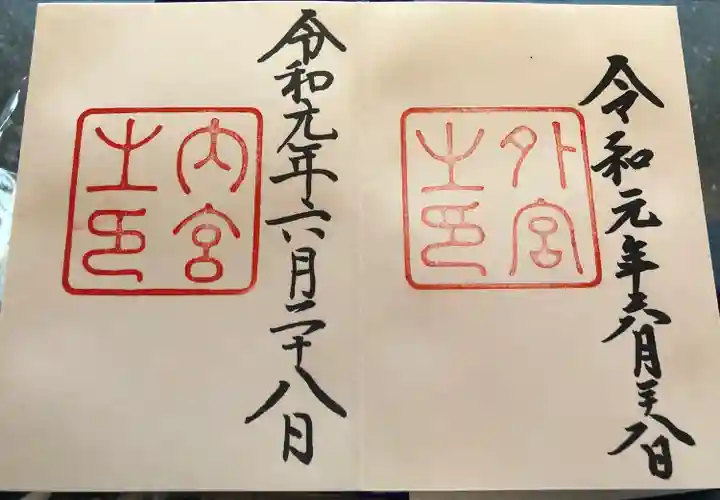 外宮之印
令和元年六月二十八日
内宮之印
令和元年六月二十八日